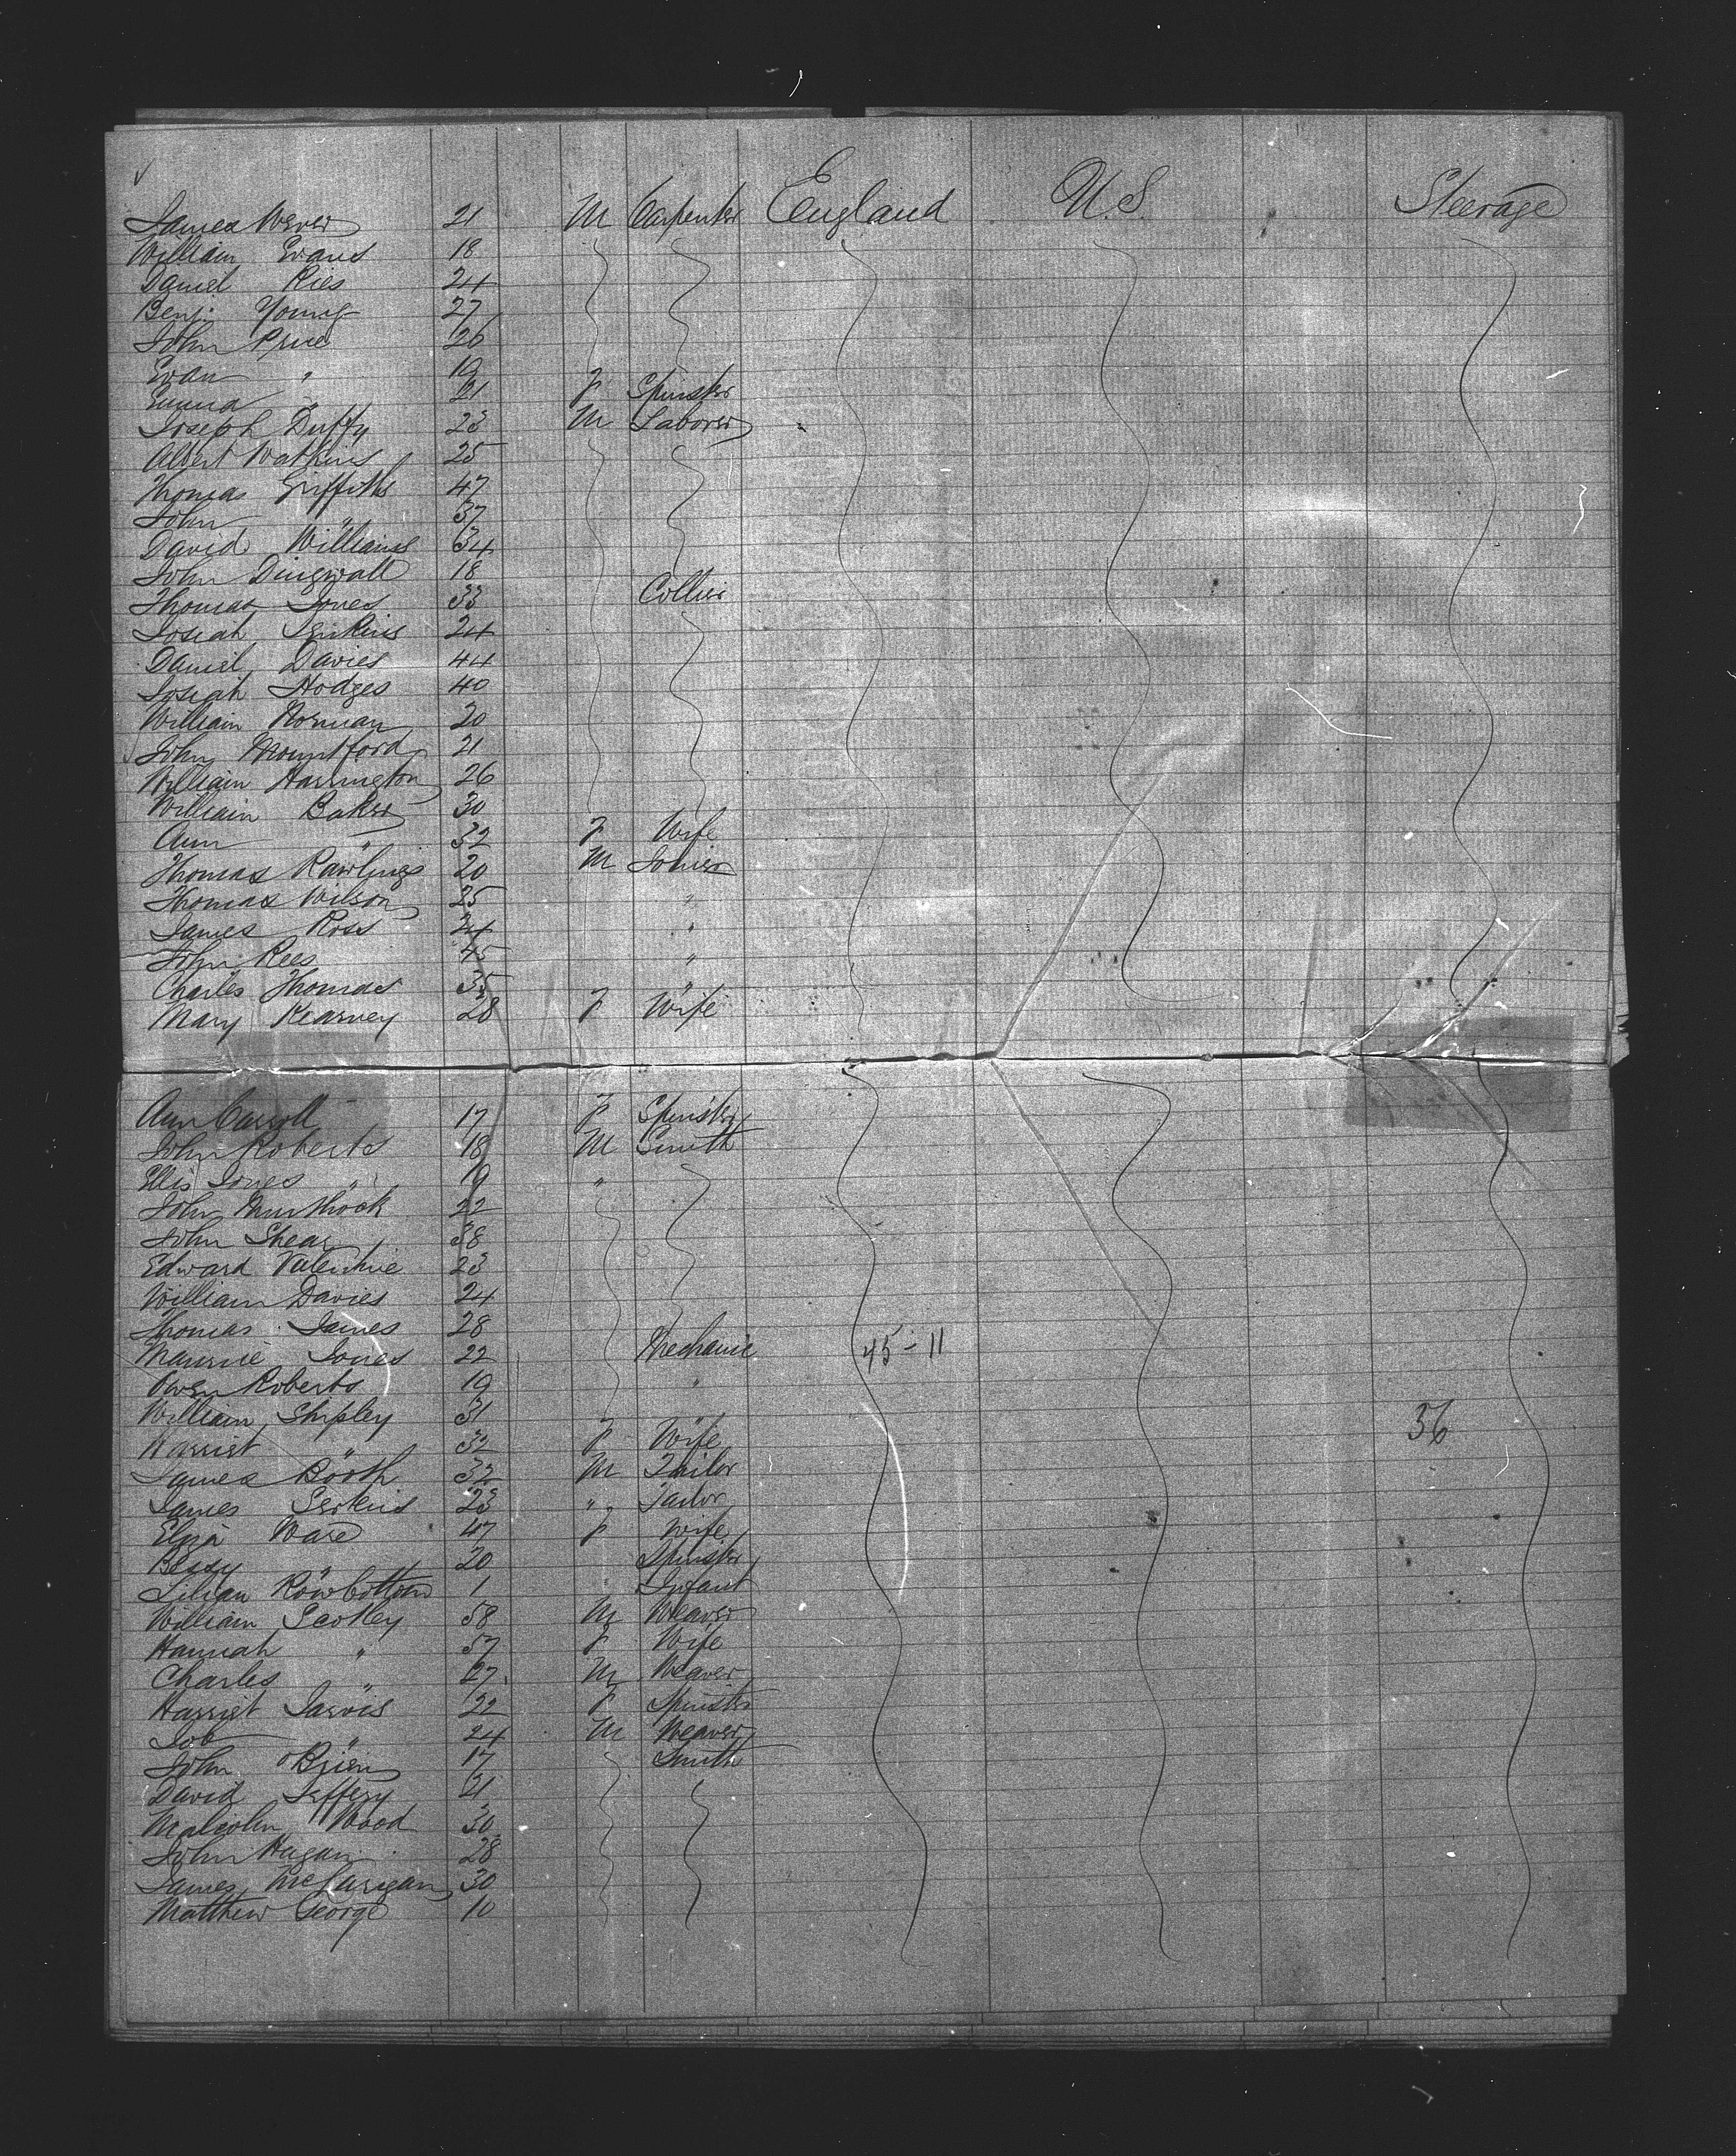 James Wever 21 M Carpenter England U.S. Steerage
William Evans 18
Daniel Ries 24
Benj. Young 27
John Price 26
Evan " 19
Emma " 21 F Spinster
Joseph Duffy 23 M Laborer
Albert Watkins 25
Thomas Griffiths 47
John " 37
David Williams 34
John Dingwall 18
Thomas Jones 33 Collier
Josiah Jenkins 24
Daniel Davies 44
Josiah Hodges 40
William Norman 20
John Mountford 21
William Harrington 26
William Baker 30
Ann " 32 F Wife
Thomas Rawlings 20 M Joiner
Thomas Wilson 25 "
James Ross 24 "
John Rees 45 "
Charles Thomas 35 "
Mary Kearney 28 F Wife
Ann Carroll 17 F Spinster
John Roberts 18 M Smith
Ellis Jones " 19 "
John 22
John Shear 38
Edward Valentine 23
William Davies 24
Thomas James 28
Maurice Jones 22 Mechanic 45-11
Owen Roberts 19 "
William Shipley 31 36
Harriet " 32 F Wife
James Booth 32 M Tailor
James 23 " Tailor
Eliza Ware 47 F Wife
Bessy " 20 Spinster
Lilian Rowbottom 1 Infant
William Scotley 58 M Weaver
Hannah " 57 F Wife
Charles " 27 M Weaver
Harriet Jarvis 22 F Spinster
Job " 24 M Weaver
John O'Brien 17 Smith
David Jeffery 21
Malcolm Wood 30
John Hagan 28
James 30
Matthew George 10